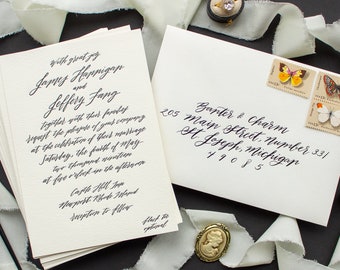 with great joy
Janny Hannigan
and
Jeffery Fang
together with their families
request the pleasure of your company
at the celebration of their marriage
Saturday, the fourth of May
two thousand nineteen
at five o'clock in the afternoon
Castle Hill Inn
Newport, Rhode Island
reception to follow
black tie
optional
Baxter & Charm
205 Main Street, Number 331
St Joseph, Michigan
49085